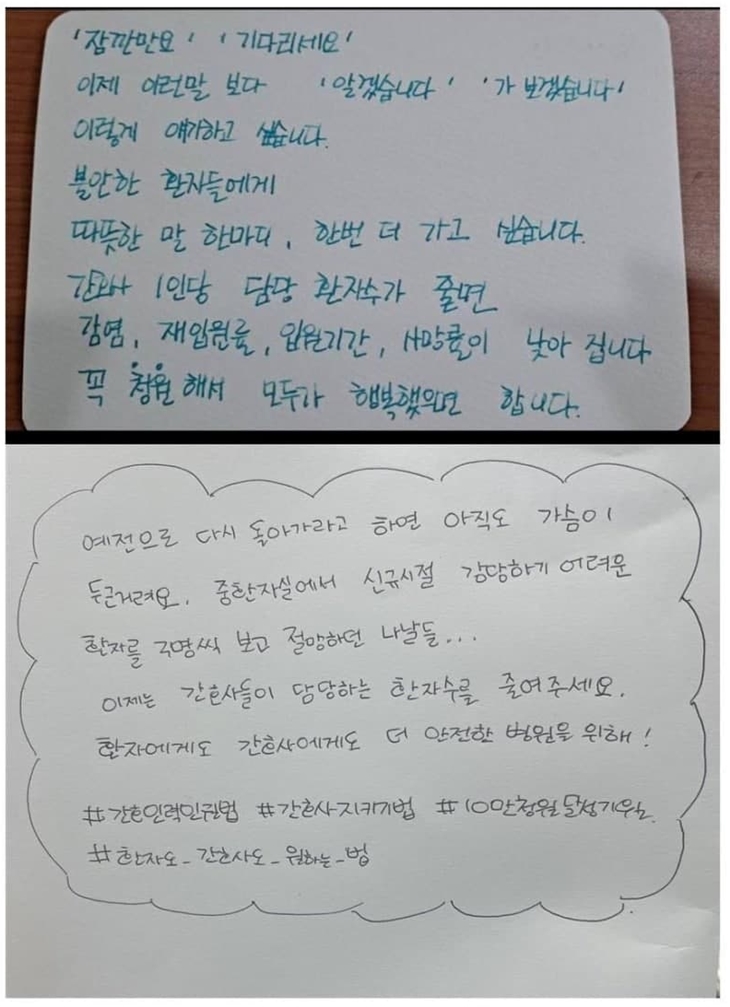 '잠깐만요' '기다리세요'
이제 이런말 보다 '알겠습니다' '가 보겠습니다'
이렇게 얘기하고 싶습니다.
불안한 환자들에게
따뜻한 말 한마디, 한번 더 가고 싶습니다.
간호사 1인당 담당 환자수가 줄면
감염, 재입원률, 입원기간, 사망률이 낮아 집니다
꼭 청원해서 모두가 행복했으면 합니다.
예전으로 다시 돌아가라고 하면 아직도 가슴이
두근거려요. 중환자실에서 신규시절 감당하기 어려운
환자를 3명씩 보고 절망하던 나날들...
이제는 간호사들이 담당하는 환자수를 줄여주세요.
환자에게도 간호사에게도 더 안전한 병원을 위해!
#간호인력인권법 #간호사지키기법 #10만청원달성기원
#환자도_간호사도_원하는_법